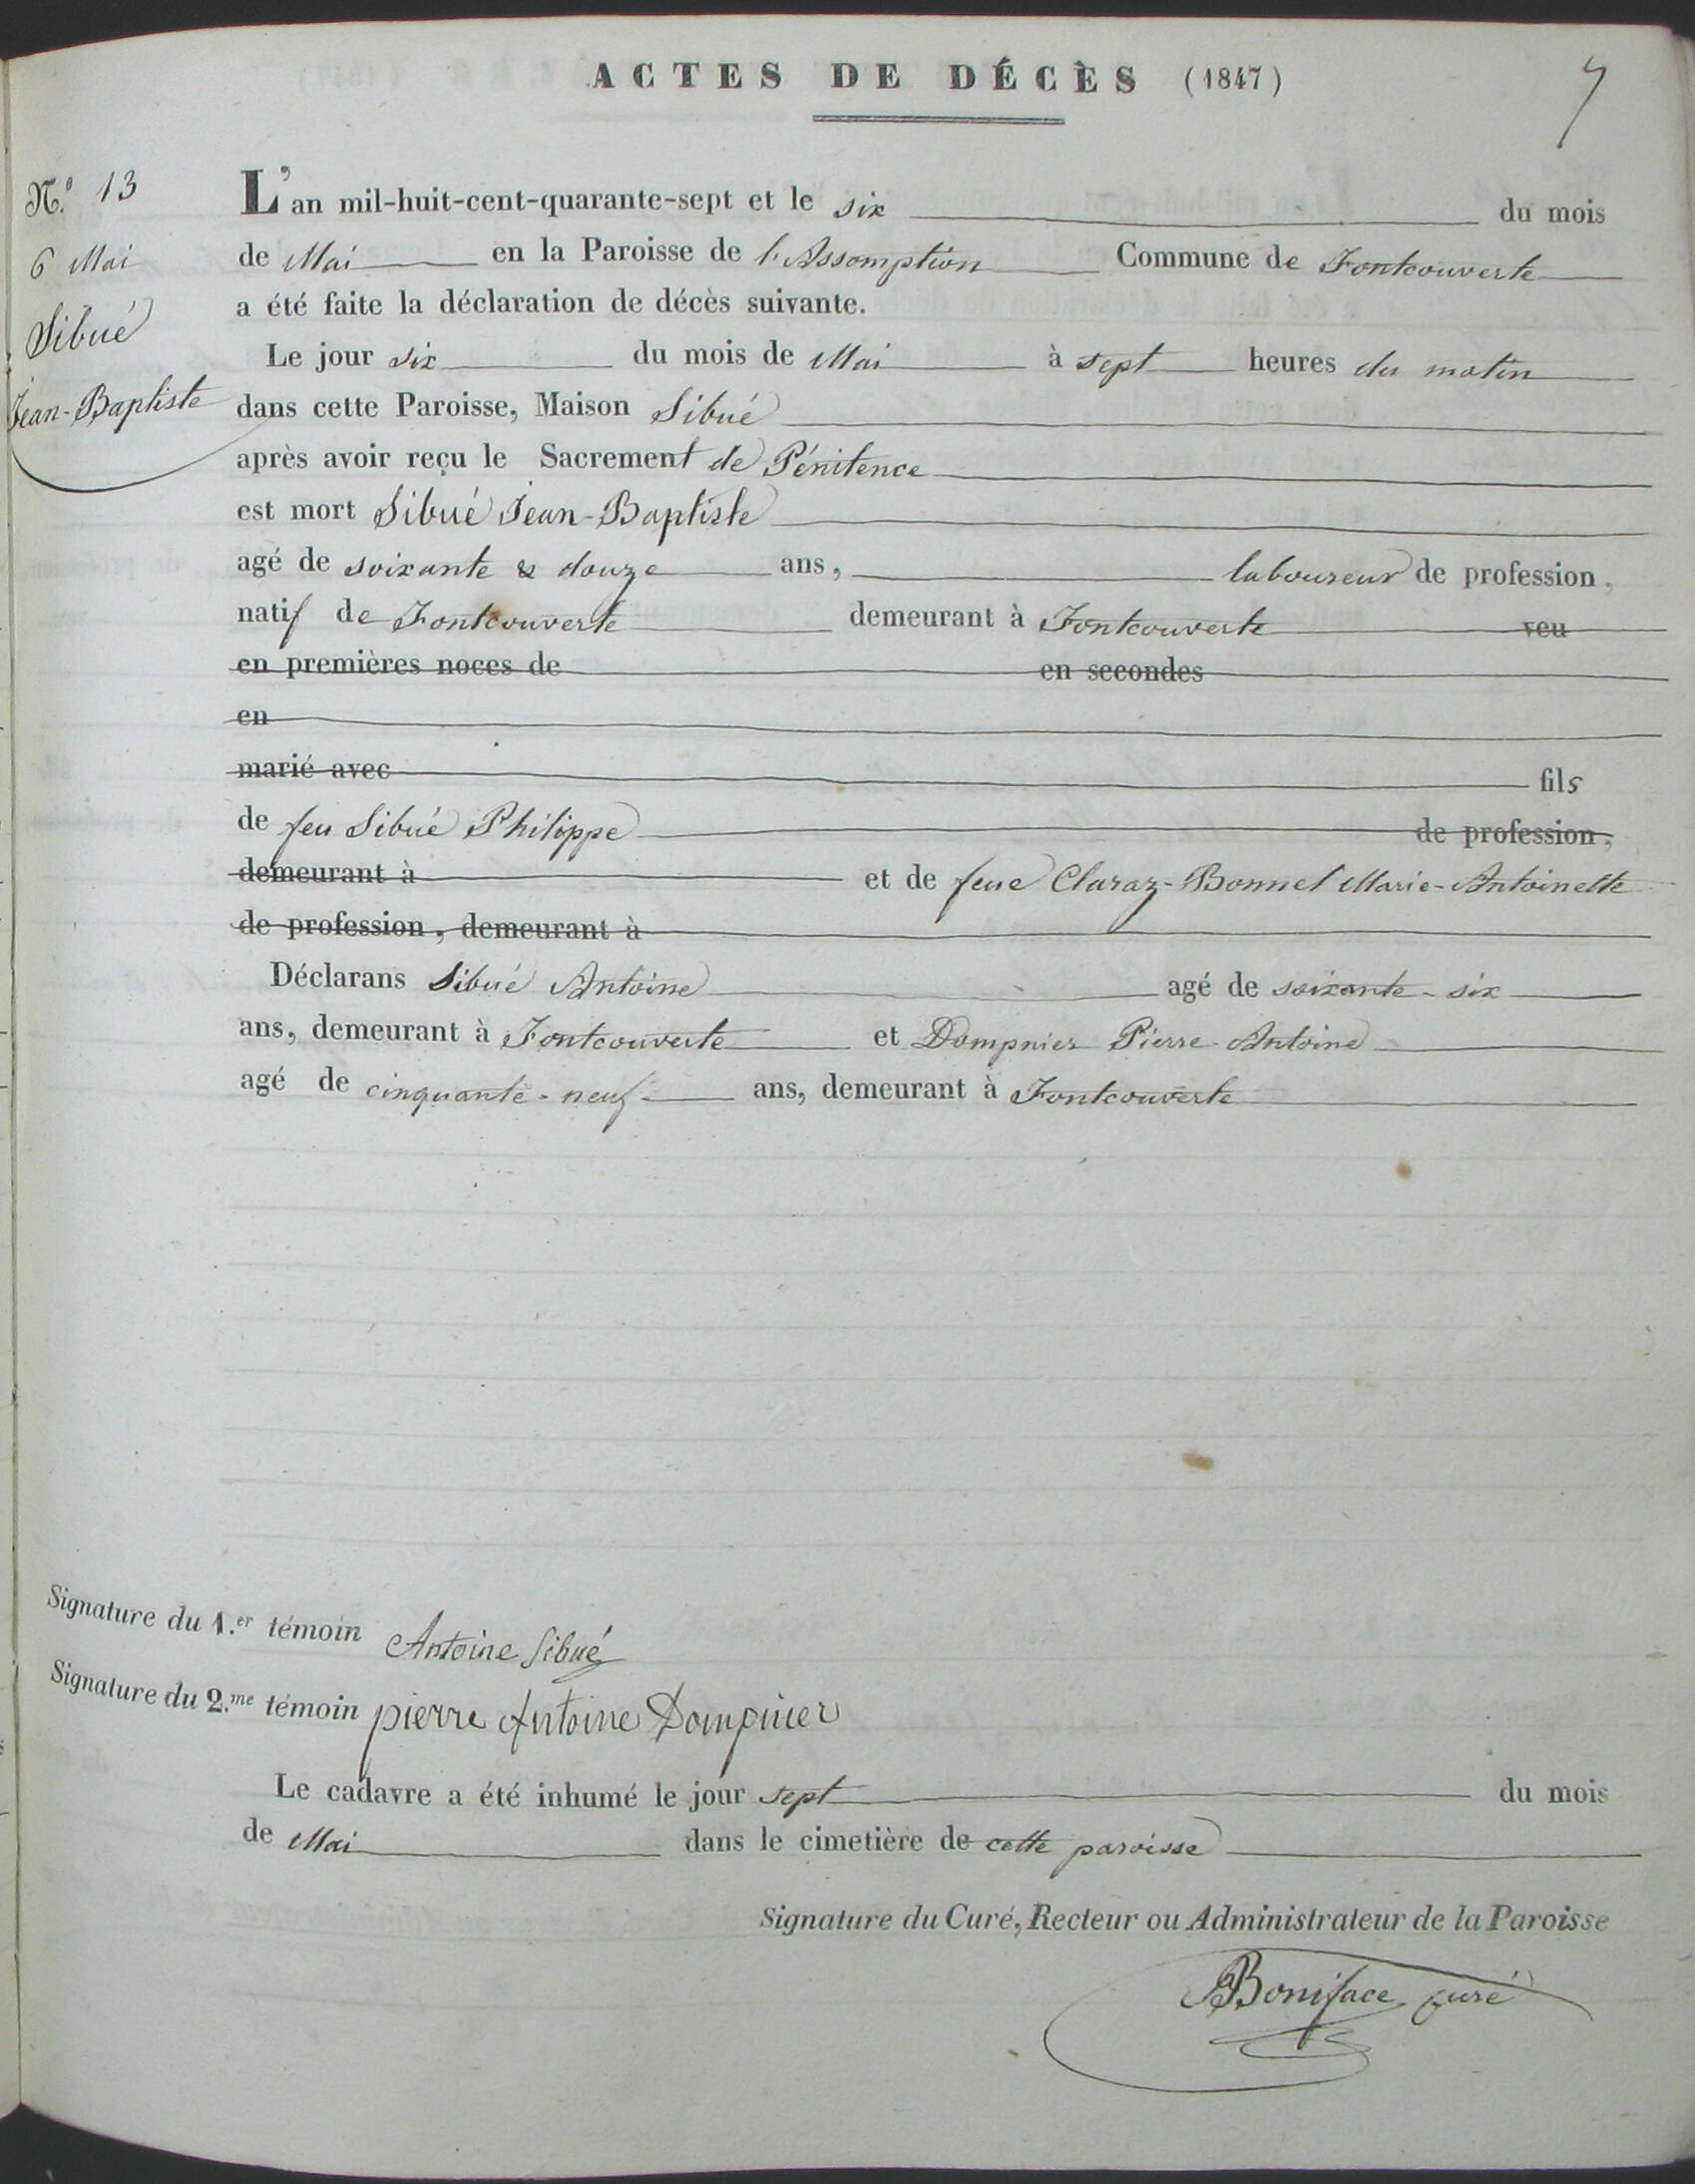 ACTES DE DÉCÈS (1847)
7
N.º 13
6 Mai
Sibué
Jean-Baptiste
L'an mil-huit-cent-quarante-sept et le six du mois
de Mai en la Paroisse de l'Assomption Commune de Fontcouverte
a été faite la déclaration de décès suivante.
Le jour six du mois de Mai à sept heures du matin
dans cette Paroisse, Maison Sibué
après avoir reçu le Sacrement de Pénitence
est mort Sibué Jean-Baptiste
agé de soixante & douze ans, laboureur de profession,
natif de Fontcouverte demeurant à Fontcouverte veu
en premières noces de en secondes
en
marié avec fils
de feu Sibué Philippe de profession,
demeurant à et de feue Claraz-Bonnel Marie-Antoinette
de profession, demeurant à
Déclarans Sibué Antoine agé de soixante-six
ans, demeurant à Fontcouverte et Dompnier Pierre-Antoine
agé de cinquante-neuf ans, demeurant à Fontcouverte
Signature du 1.er témoin Antoine Sibué
Signature du 2.me témoin pierre Antoine Dompnier
Le cadavre a été inhumé le jour sept du mois
de Mai dans le cimetière de cette paroisse
Signature du Curé, Recteur ou Administrateur de la Paroisse
Boniface curé